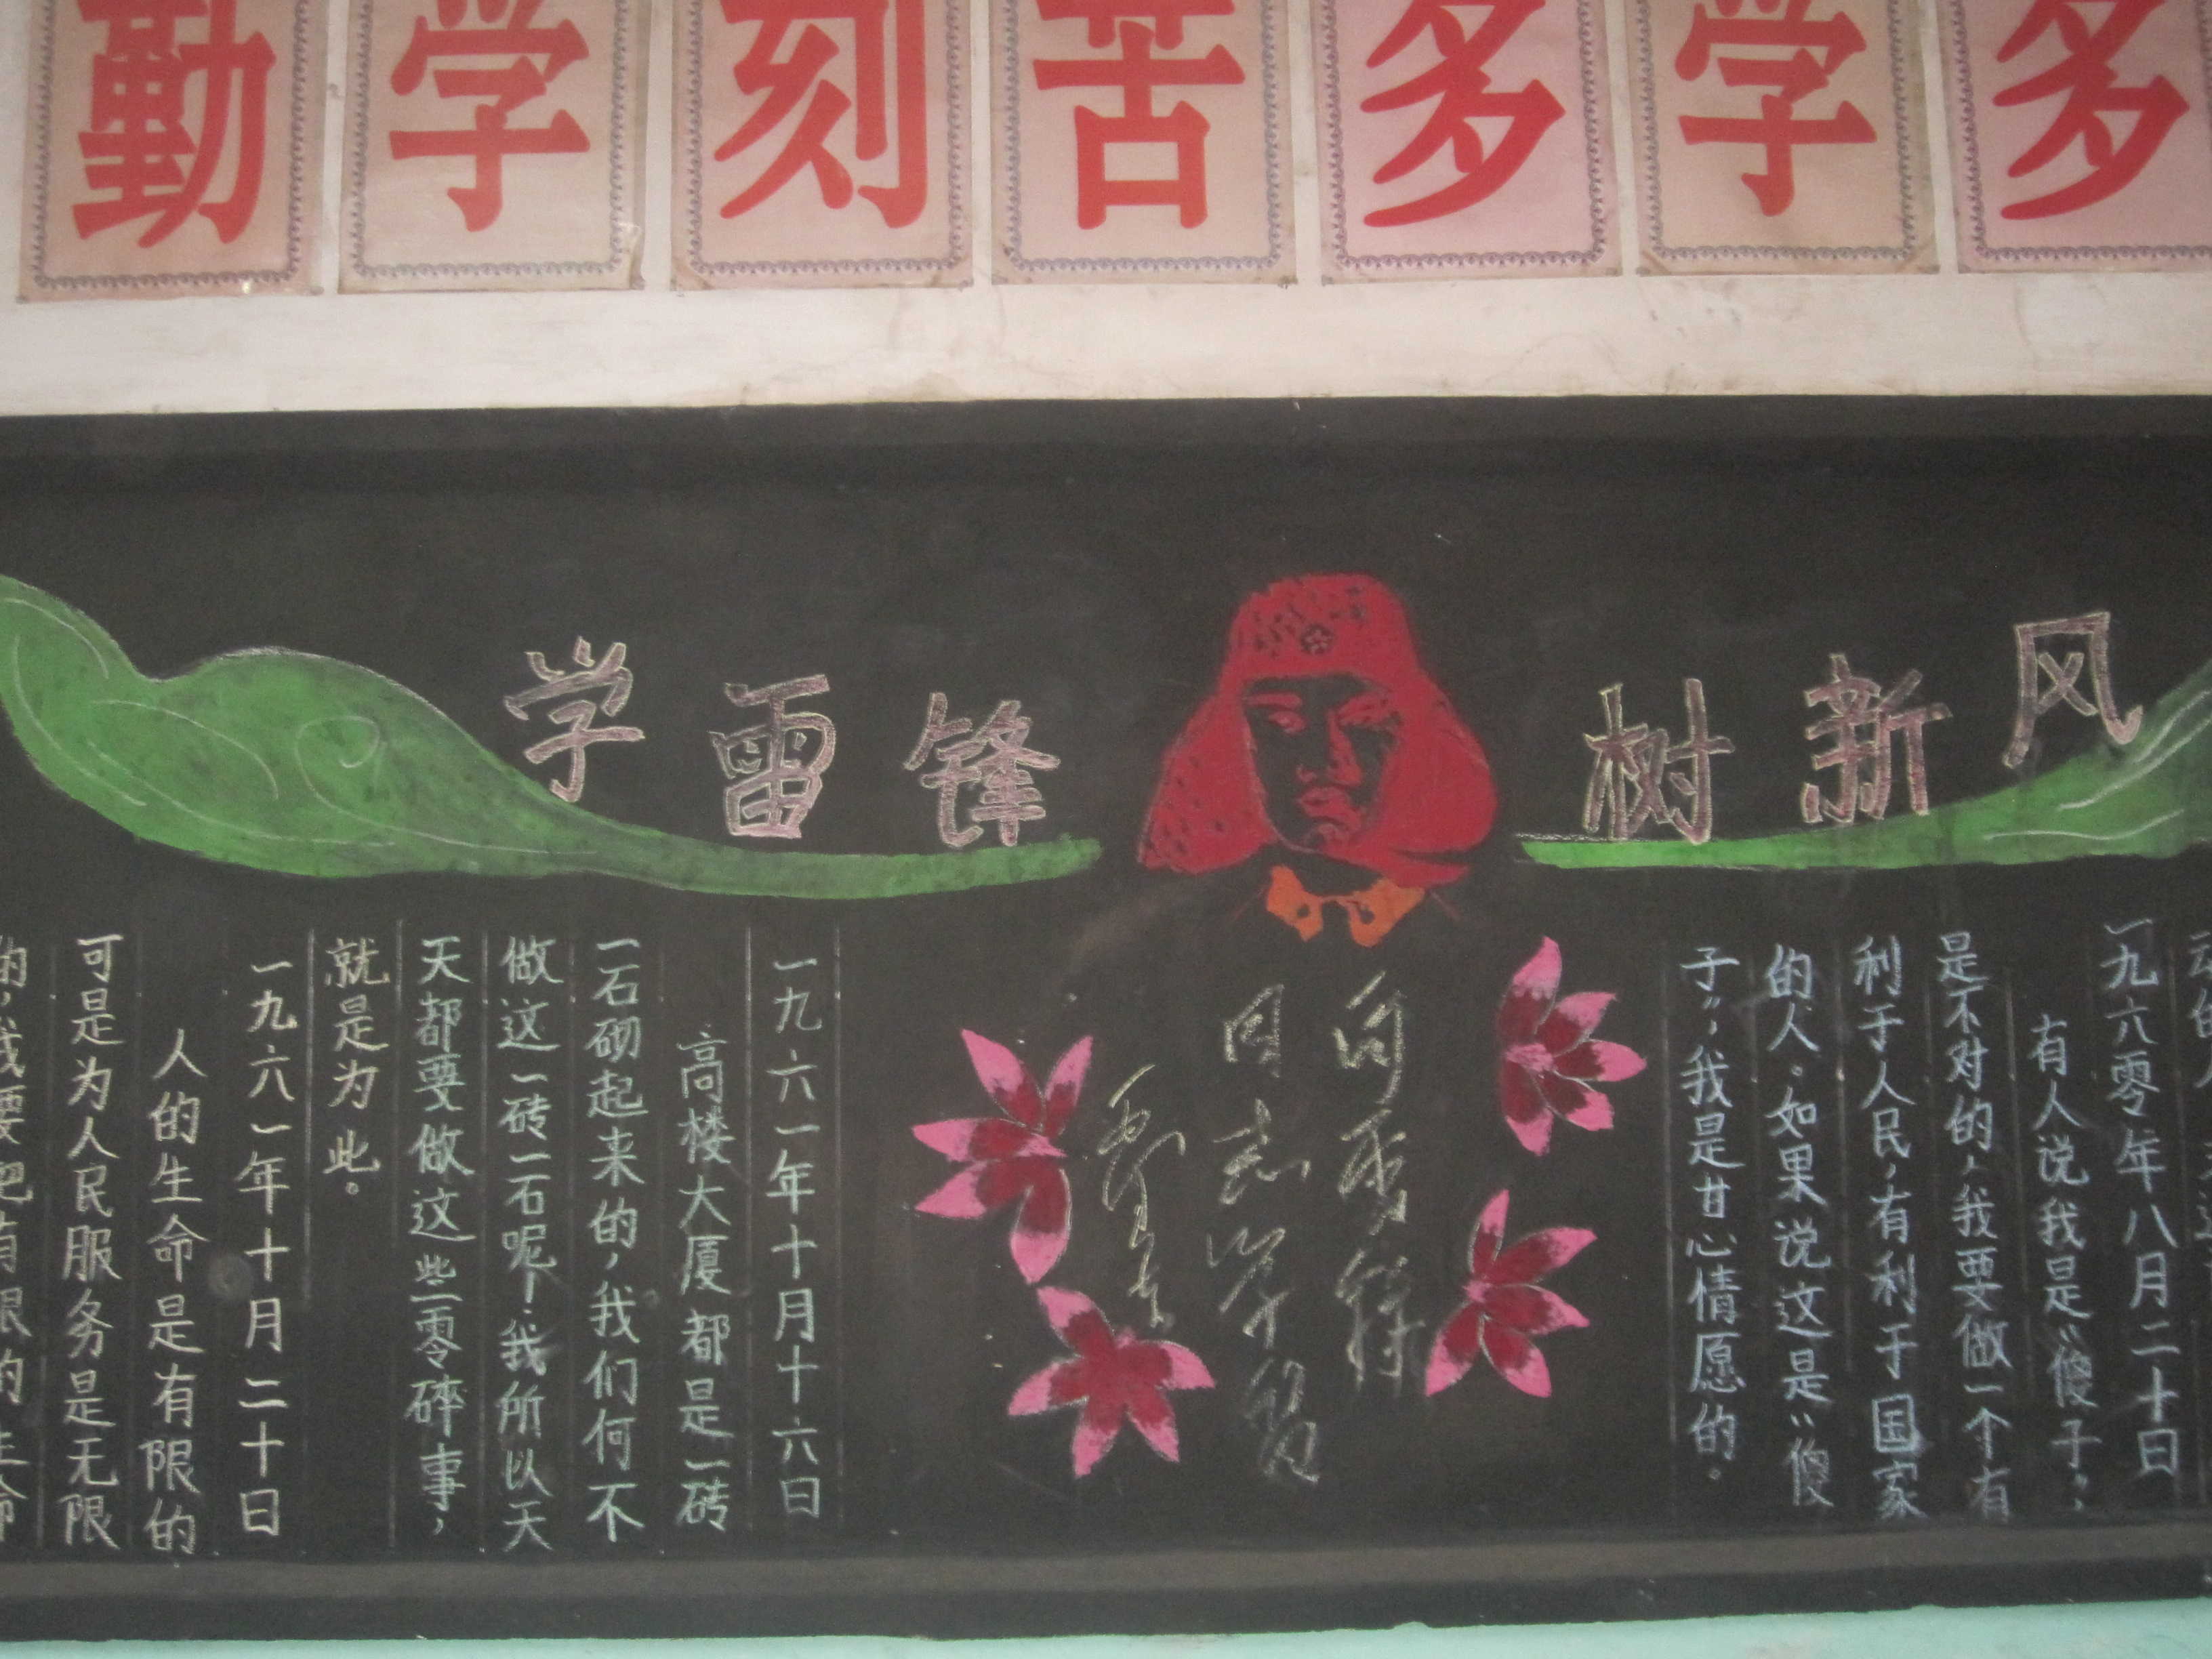 勤学刻苦多学多
学雷锋 树新风
一九六零年八月二十日
有人说我是“傻子”，
是不对的，我要做一个有
利于人民，有利于国家
的人。如果说这是“傻
子”，我是甘心情愿的。
向雷锋
同志学习
毛泽东
一九六一年十月十六日
高楼大厦都是一砖
一石砌起来的，我们何不
做这一砖一石呢！我所以天
天都要做这些零碎事，
就是为此。
一九六一年十月二十日
人的生命是有限的
可是为人民服务是无限
的，我要把有限的生命